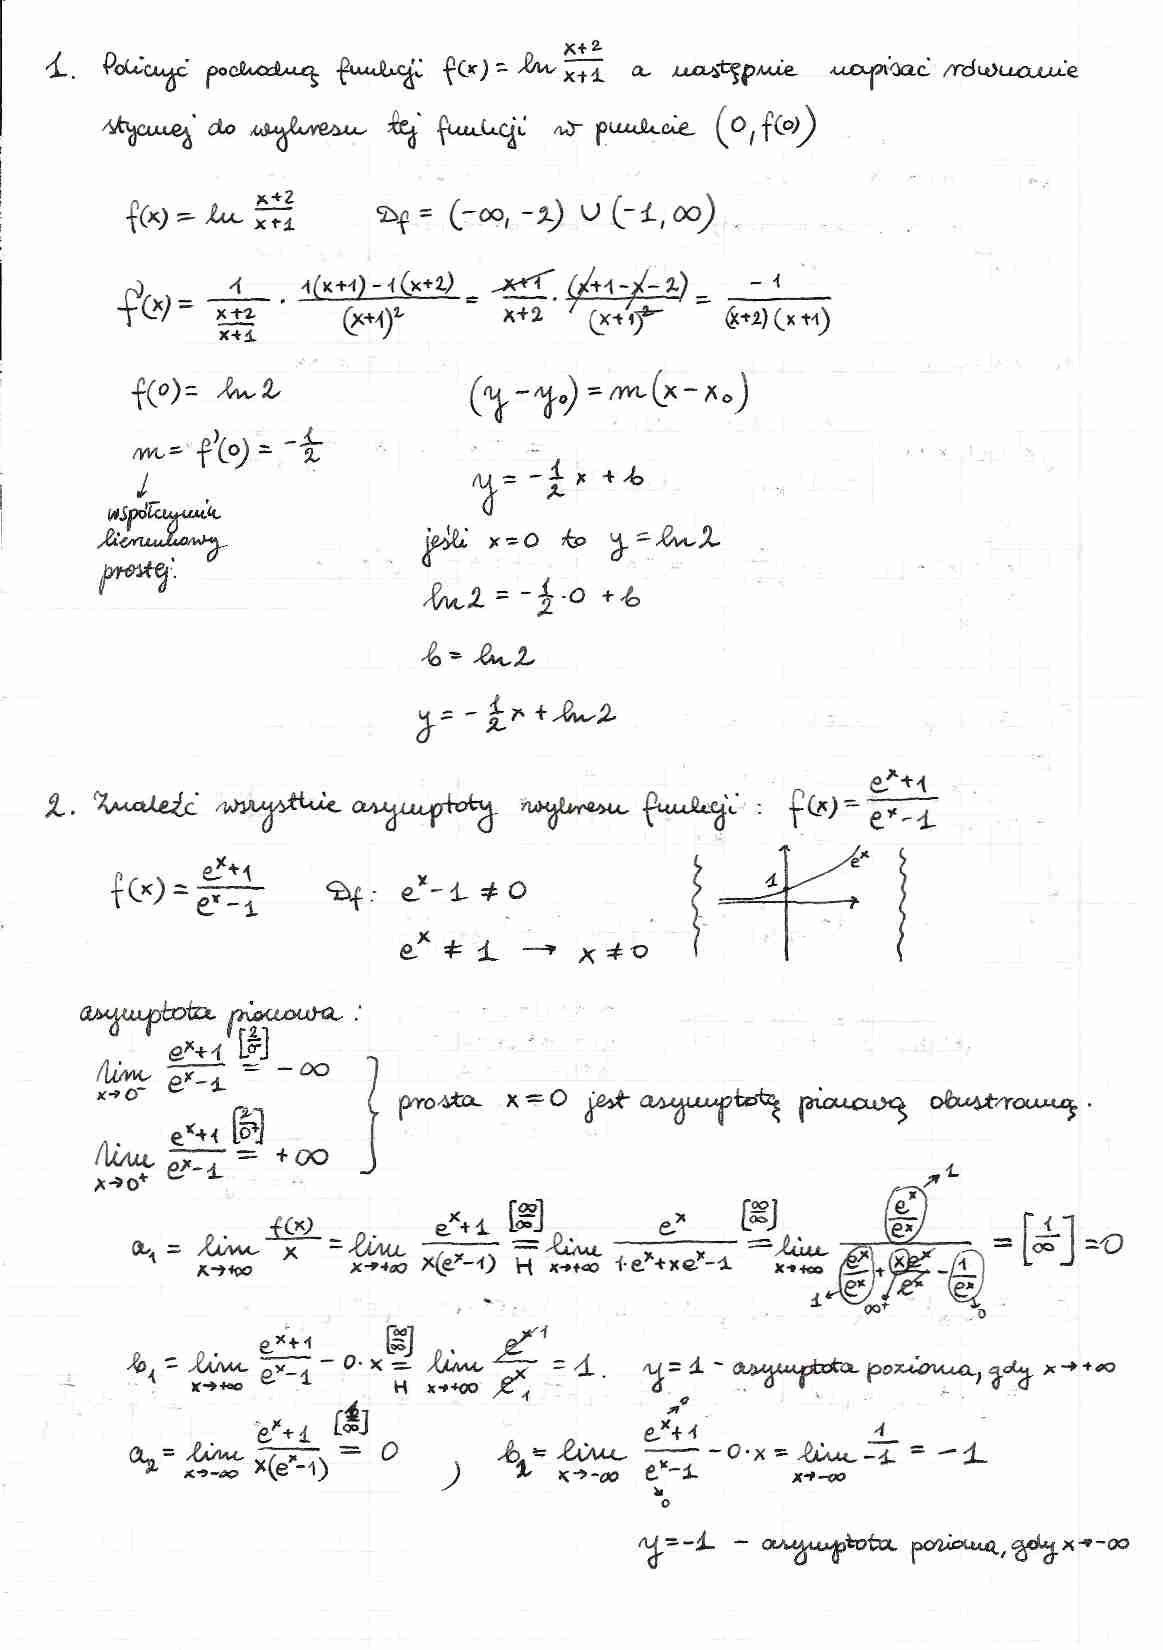 1. Policzyć pochodną funkcji f(x) = ln (x+2)/(x+1) a następnie napisać równanie
stycznej do wykresu tej funkcji w punkcie (0, f(0))
f(x) = ln (x+2)/(x+1)    Df = (-∞, -2) ∪ (-1, ∞)
f'(x) = 1/((x+2)/(x+1)) · (1(x+1) - 1(x+2))/(x+1)² = (x+1)/(x+2) · (x+1-x-2)/(x+1)² = -1/((x+2)(x+1))
f(0) = ln 2    (y - y₀) = m(x - x₀)
m = f'(0) = -1/2
↓
współczynnik
kierunkowy
prostej.
y = -1/2 x + b
jeśli x=0 to y = ln 2
ln 2 = -1/2 · 0 + b
b = ln 2
y = -1/2 x + ln 2
2. Znaleźć wszystkie asymptoty wykresu funkcji : f(x) = (eˣ+1)/(eˣ-1)
f(x) = (eˣ+1)/(eˣ-1)    Df : eˣ - 1 ≠ 0    1    eˣ
eˣ ≠ 1 → x ≠ 0
asymptota pionowa :
lim x→0⁻ (eˣ+1)/(eˣ-1) [2/0⁻] = -∞
prosta x=0 jest asymptotą pionową obustronną.
lim x→0⁺ (eˣ+1)/(eˣ-1) [2/0⁺] = +∞
a₁ = lim x→+∞ f(x)/x = lim x→+∞ (eˣ+1)/(x(eˣ-1)) [∞/∞] =H lim x→+∞ eˣ/(1·eˣ+xeˣ-1) [∞/∞] = lim x→+∞ (eˣ/eˣ →1)/(eˣ/eˣ →1 + xeˣ/eˣ →∞⁺ - 1/eˣ →0) = [1/∞] = 0
b₁ = lim x→+∞ (eˣ+1)/(eˣ-1) - 0·x [∞/∞] =H lim x→+∞ eˣ/eˣ = 1.    y = 1 - asymptota pozioma, gdy x→+∞
a₂ = lim x→-∞ (eˣ+1)/(x(eˣ-1)) [1/∞] = 0 , b₂ = lim x→-∞ (eˣ+1)/(eˣ-1) - 0·x = lim x→-∞ 1/-1 = -1
y = -1 - asymptota pozioma, gdy x→-∞